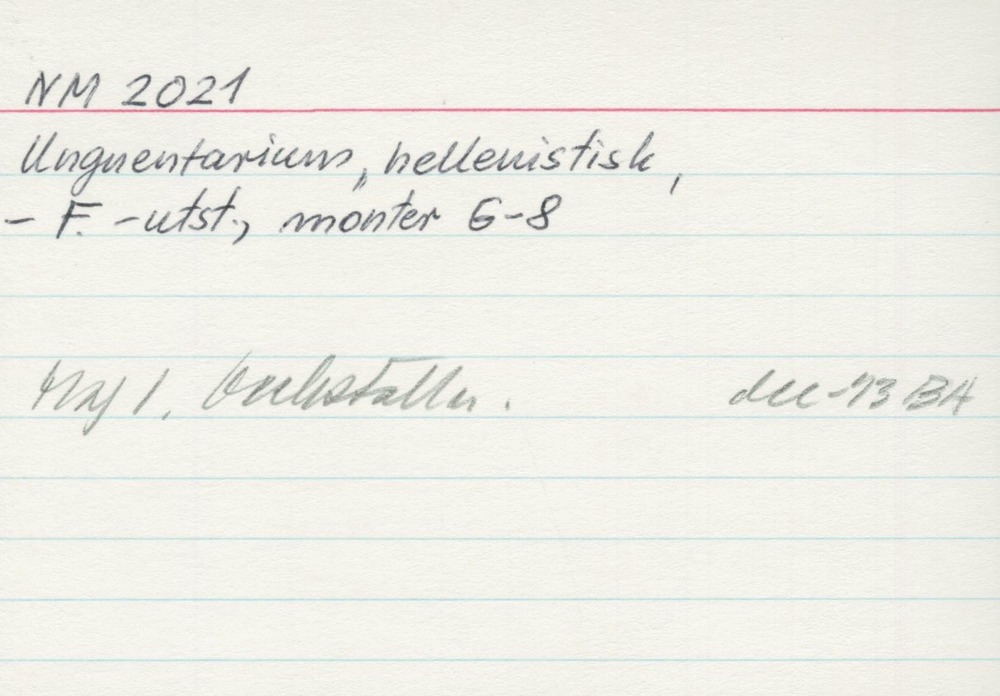 NM 2021
Unguentarium, hellenistisk,
- F.-utst., monter 6-8
Mag 1, Verkställer. dec-73 BA